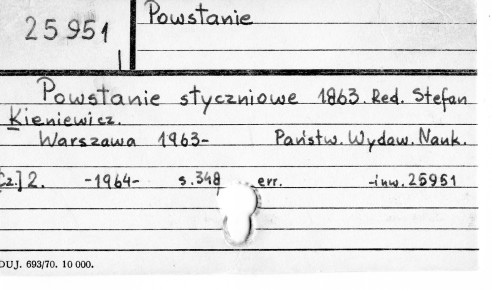 25951
Powstanie
Powstanie styczniowe 1863. Red. Stefan
Kieniewicz.
Warszawa 1963- Państw. Wydaw. Nauk.
Cz.] 2. -1964- s. 348, err. -inw. 25951
DUJ. 693/70. 10 000.